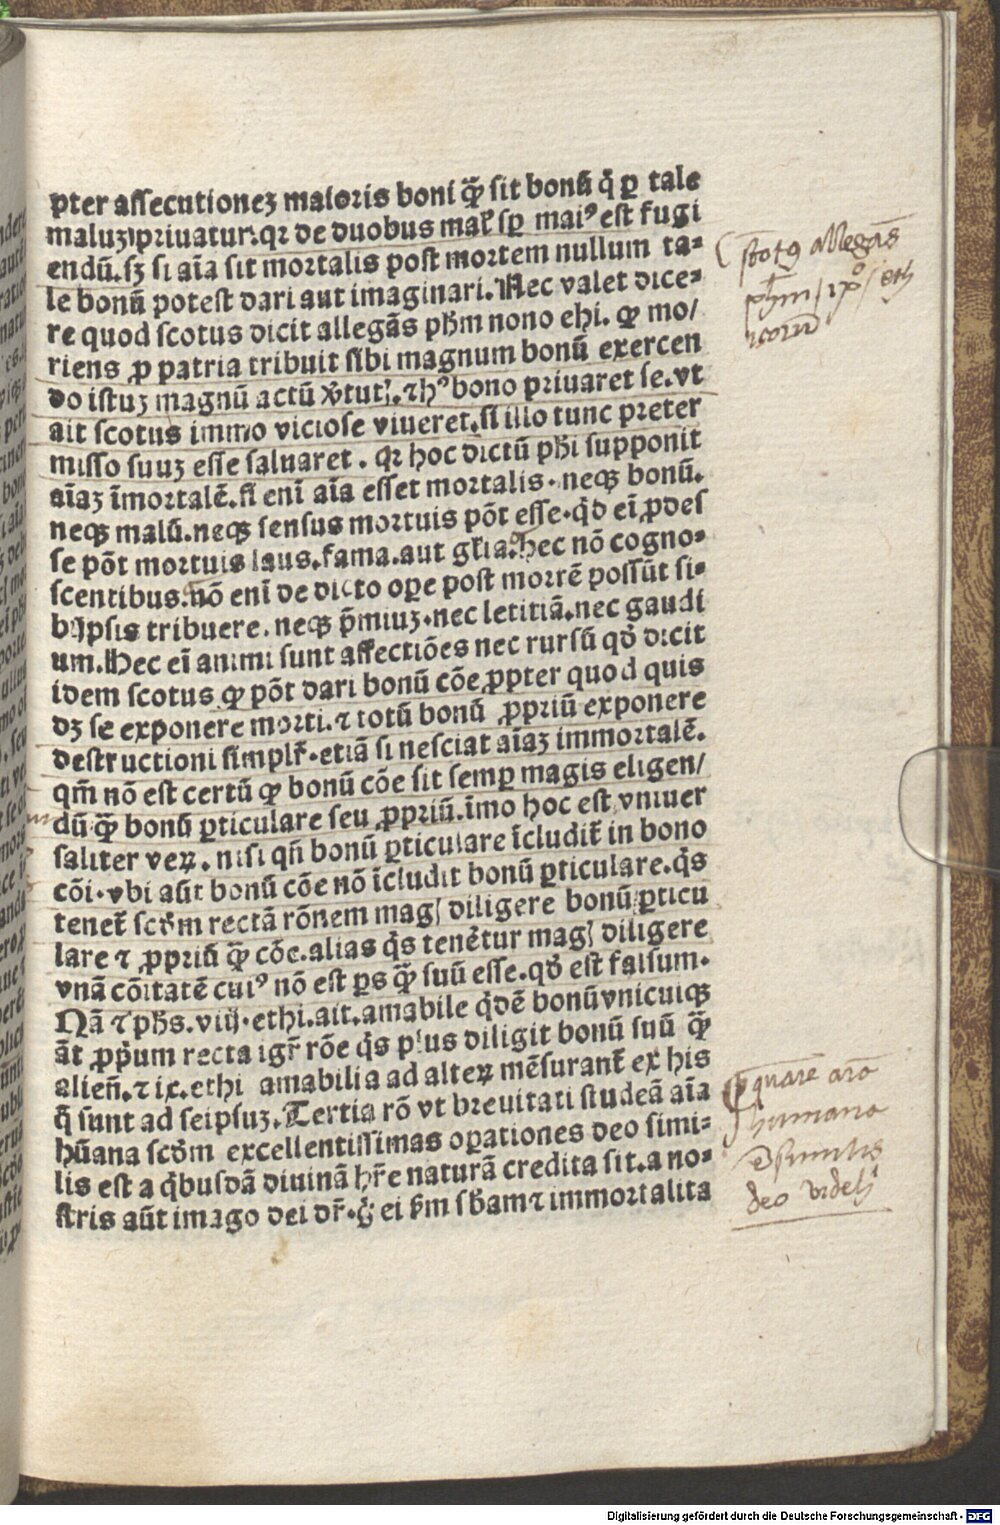 pter assecutionez maioris boni q̃ꝫ sit bonũ q̃ ꝑ tale
maluz priuatur. qꝛ de duobus mal̃ sꝑ maiꝰ est fugi
endũ. sꝫ si aĩa sit mortalis post mortem nullum ta⸗
le bonũ potest dari aut imaginari. Nec valet dice⸗
re quod scotus dicit allegãs pħm nono ehi. ꝙ mo/
riens ꝓ patria tribuit sibi magnum bonũ exercen
do istuz magnũ actũ ꝟtut̃. ⁊ hꝰ bono priuaret se. vt
ait scotus immo viciose viueret. si illo tunc preter
misso suuz esse saluaret. qꝛ hoc dictũ pħi supponit
aĩaz ĩmortalẽ. si enĩ aĩa esset mortalis. neqꝫ bonũ.
neqꝫ malũ. neqꝫ sensus mortuis põt esse. qď eĩ ꝓdes
se põt mortuis laus. fama. aut gl̃ia. Hec nõ cogno⸗
scentibus. nõ enĩ de dicto oꝑe post mortẽ possũt si⸗
bijpsis tribuere. neqꝫ p̃miuz. nec letitiã. nec gaudi
um. Hec eĩ animi sunt affectiões nec rursũ qď dicit
idem scotus ꝙ põt dari bonũ cõe ꝓpter quod quis
dꝫ se exponere morti. ⁊ totũ bonũ ꝓpriũ exponere
destructioni simpl̃r. etiã si nesciat aĩaz immortalẽ.
qm̃ nõ est certũ ꝙ bonũ cõe sit semꝑ magis eligen/
dũ q̃ꝫ bonũ ꝑticulare seu ꝓpriũ. ĩmo hoc est vniuer
saliter veꝝ. nisi qñ bonũ ꝑticulare ĩcludit̃ in bono
cõi. vbi aũt bonũ cõe nõ ĩcludit bonũ ꝑticulare. q̃s
tenet̃ scďm rectã rõnem mag̃ diligere bonũ ꝑticu
lare ⁊ ꝓpriũ q̃ꝫ cõe. alias q̃s tenẽtur mag̃ diligere
vnã cõitatẽ cuiꝰ nõ est ꝑs q̃ꝫ suũ esse. qď est falsum.
Nã ⁊ pħs. viij. ethi. ait. amabile q̃dẽ bonũ vnicuiqꝫ
ãt ꝓp̃um recta igr̃ rõe q̃s plus diligit bonũ suũ q̃ꝫ
alienũ. ⁊ ix. ethi amabilia ad alteꝝ mẽsurant̃ ex his
q̃ sunt ad seipsuz. Tertia rõ vt breuitati studeã aĩa
hũana scďm excellentissimas oꝑationes deo simi⸗
lis est a q̃busdã diuinã hr̃e naturã credita sit. a no⸗
stris aũt imago dei dr̃. g̃ ei ẜm sb̃am ⁊ immortalita
scotꝰ allegãs
pħm / ix° / eth
icorũ
quare aĩa
humana
deo videtur
Digitalisierung gefördert durch die Deutsche Forschungsgemeinschaft - DFG